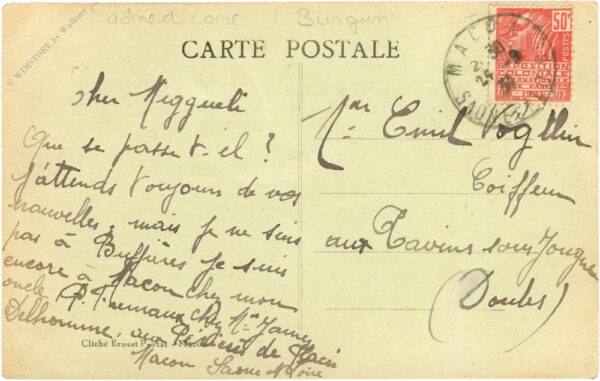 Saône et Loire / Burgund
© WIMSTORE by Walkner
CARTE POSTALE
cher Miggueti
Que se passe t-il ?
j'attends toujours de vos
nouvelles, mais je ne suis
pas à Buffières je suis
encore à Macon chez mon
oncle P. chez Mr
Delhomme, aux de Flacé
Macon Saone et Loire
Cliché Ernest Protat - Macon
50c
POSTES
EXPOSITION
COLONIALE
MACON
SAONE-ET-
Mr Emil
Coiffeur
aux Tavins sous Jougne
(Doubs)